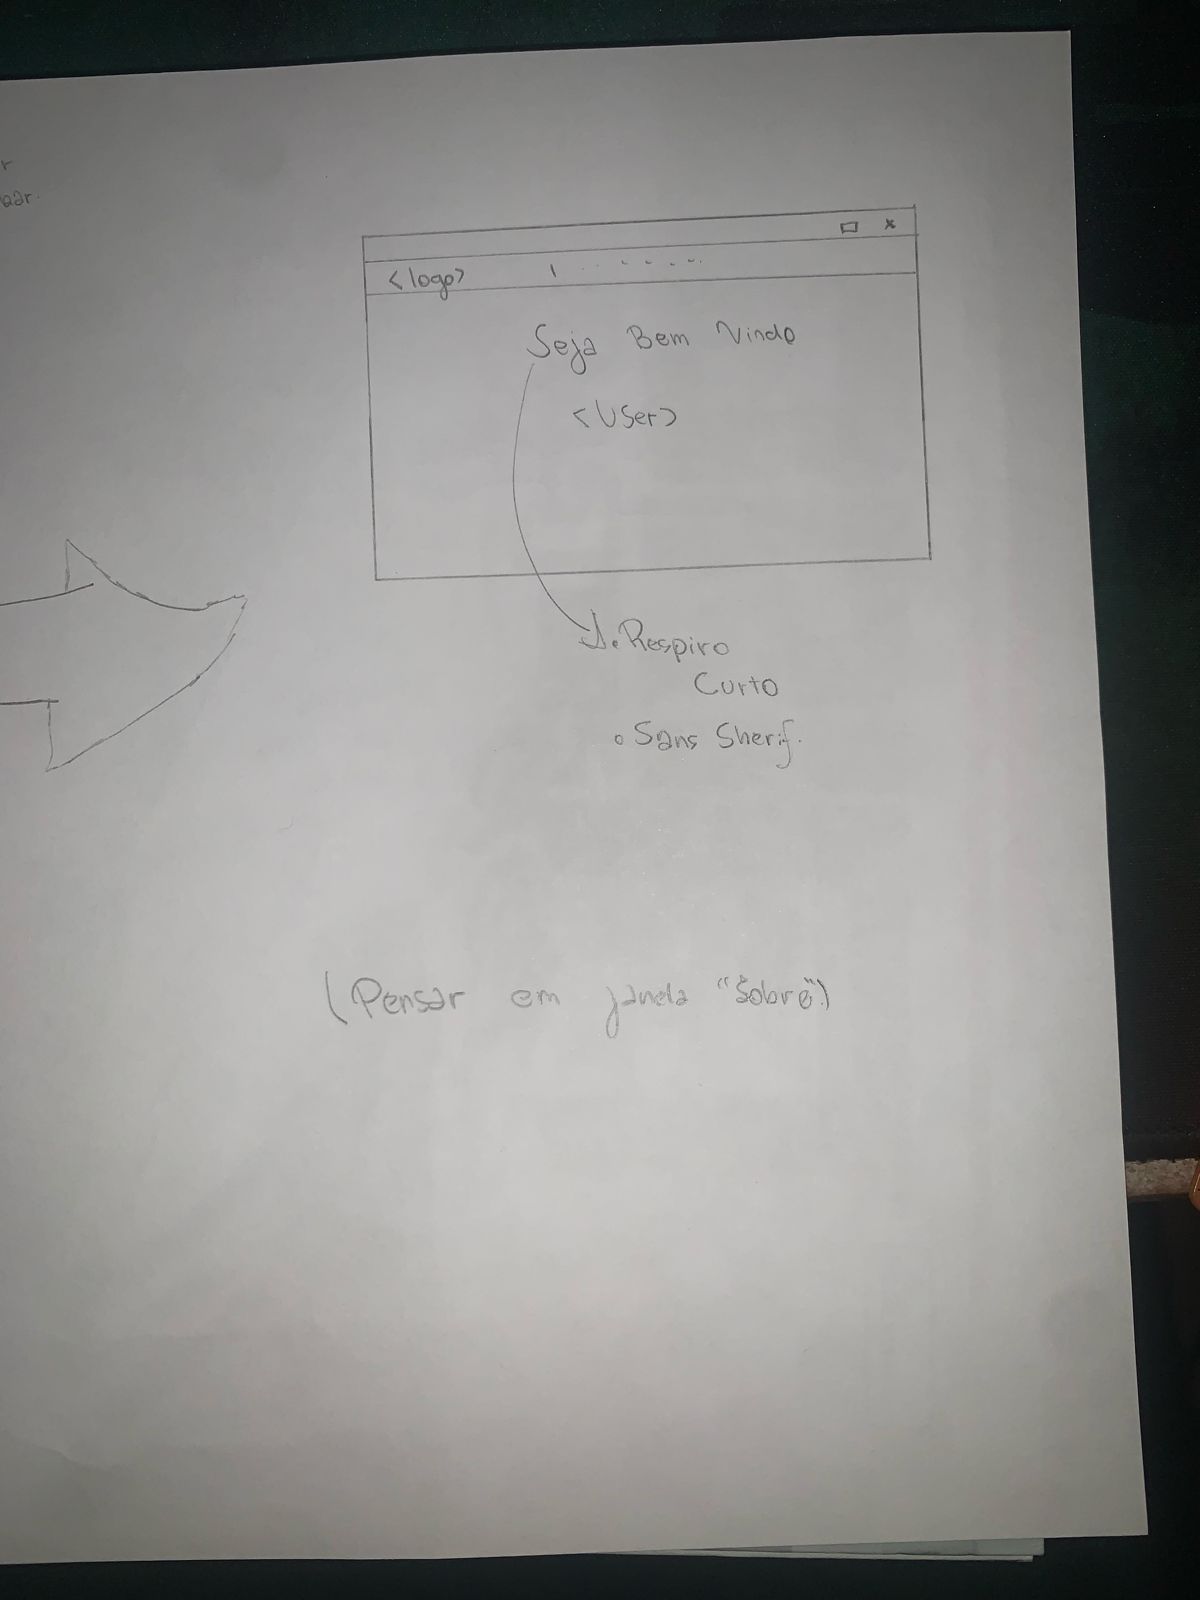 <logo>
Seja Bem Vindo
<User>
• Respiro
Curto
• Sans Sherif.
(Pensar em janela "Sobre")